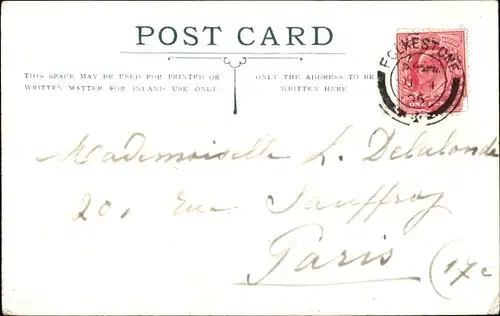 POST CARD
THIS SPACE MAY BE USED FOR PRINTED OR
WRITTEN MATTER FOR INLAND USE ONLY.
ONLY THE ADDRESS TO BE
WRITTEN HERE
FOLKESTONE
ONE
Mademoiselle L. Delalonde
20, Rue Sauffroy
Paris (17e